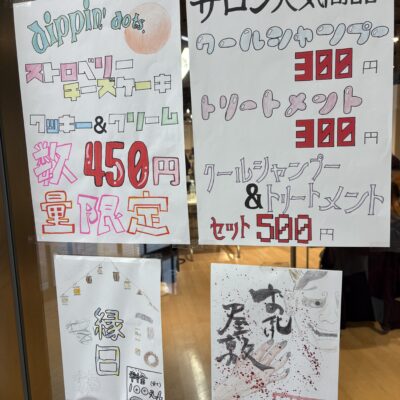 dippin' dots,
ストロベリー
チーズケーキ
クッキー&クリーム
数 450円
量限定
サロン人気商品
クールシャンプー
300円
トリートメント
300円
クールシャンプー
&トリートメント
セット 500円
縁日
お化
屋敷